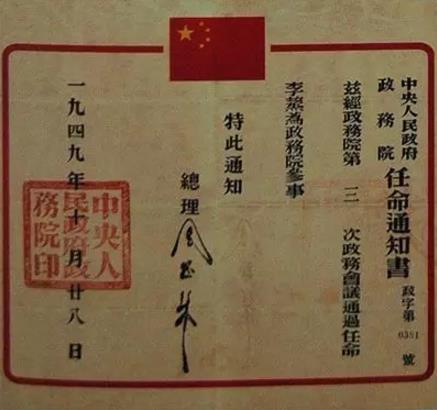 中央人民政府
政務院
任命通知書
政字第
0381
號
茲經政務院第 三 次政務會議通過任命
李蒸為政務院參事
特此通知
總理 周恩來
一九四九年十月廿八日
中央人
民政府政
務院印